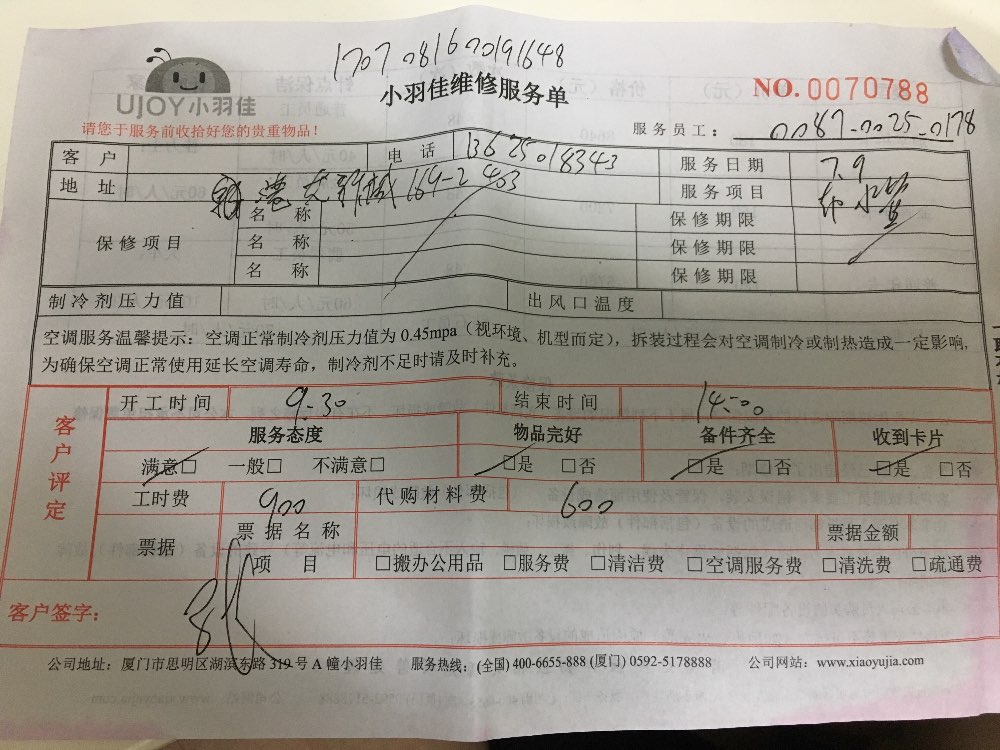 1707081600191648
UJOY小羽佳
小羽佳维修服务单
NO. 0070788
请您于服务前收拾好您的贵重物品！
服务员工： 0087-0025-0178
客 户 电 话 13625018343 服务日期 7.9
地 址 164-2 403 服务项目
保修项目 名 称 保修期限
名 称 保修期限
名 称 保修期限
制冷剂压力值 出风口温度
空调服务温馨提示：空调正常制冷剂压力值为 0.45mpa（视环境、机型而定），拆装过程会对空调制冷或制热造成一定影响,
为确保空调正常使用延长空调寿命，制冷剂不足时请及时补充。
客户评定
开工时间 9:30 结束时间 14:00
服务态度 物品完好 备件齐全 收到卡片
满意□ 一般□ 不满意□ □是 □否 □是 □否 □是 □否
工时费 900 代购材料费 600
票据 票据名称 票据金额
项 目 □搬办公用品 □服务费 □清洁费 □空调服务费 □清洗费 □疏通费
客户签字：
公司地址：厦门市思明区湖滨东路 319 号 A 幢小羽佳 服务热线：(全国) 400-6655-888 (厦门) 0592-5178888 公司网站：www.xiaoyujia.com